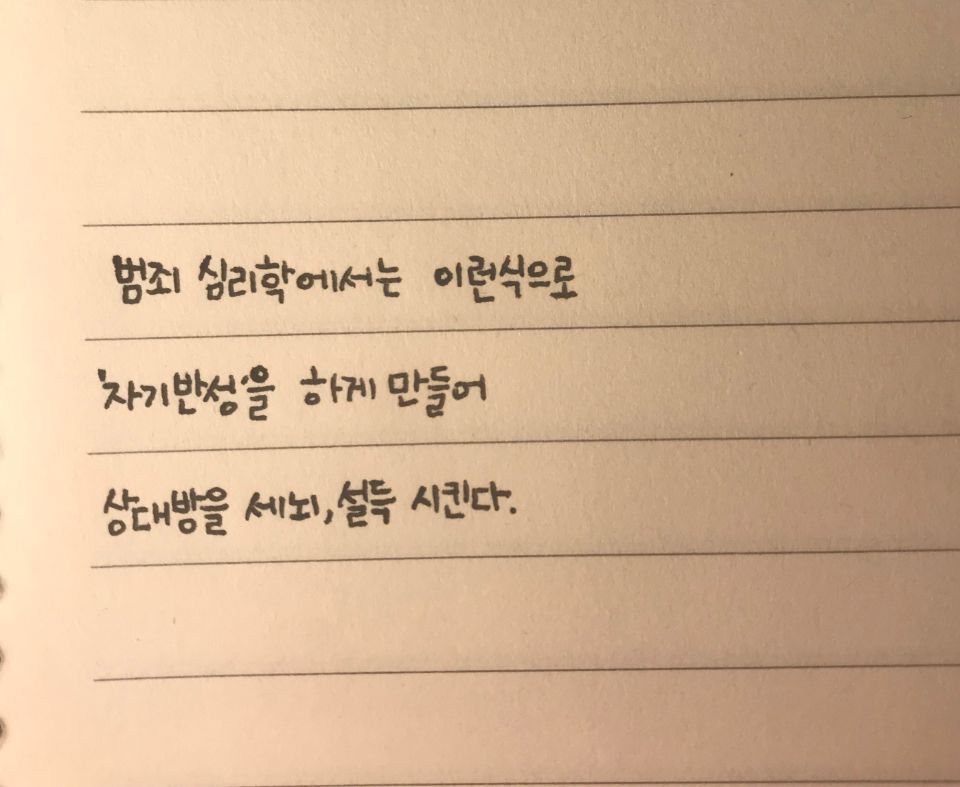 범죄 심리학에서는 이런식으로
'자기반성'을 하게 만들어
상대방을 세뇌, 설득 시킨다.